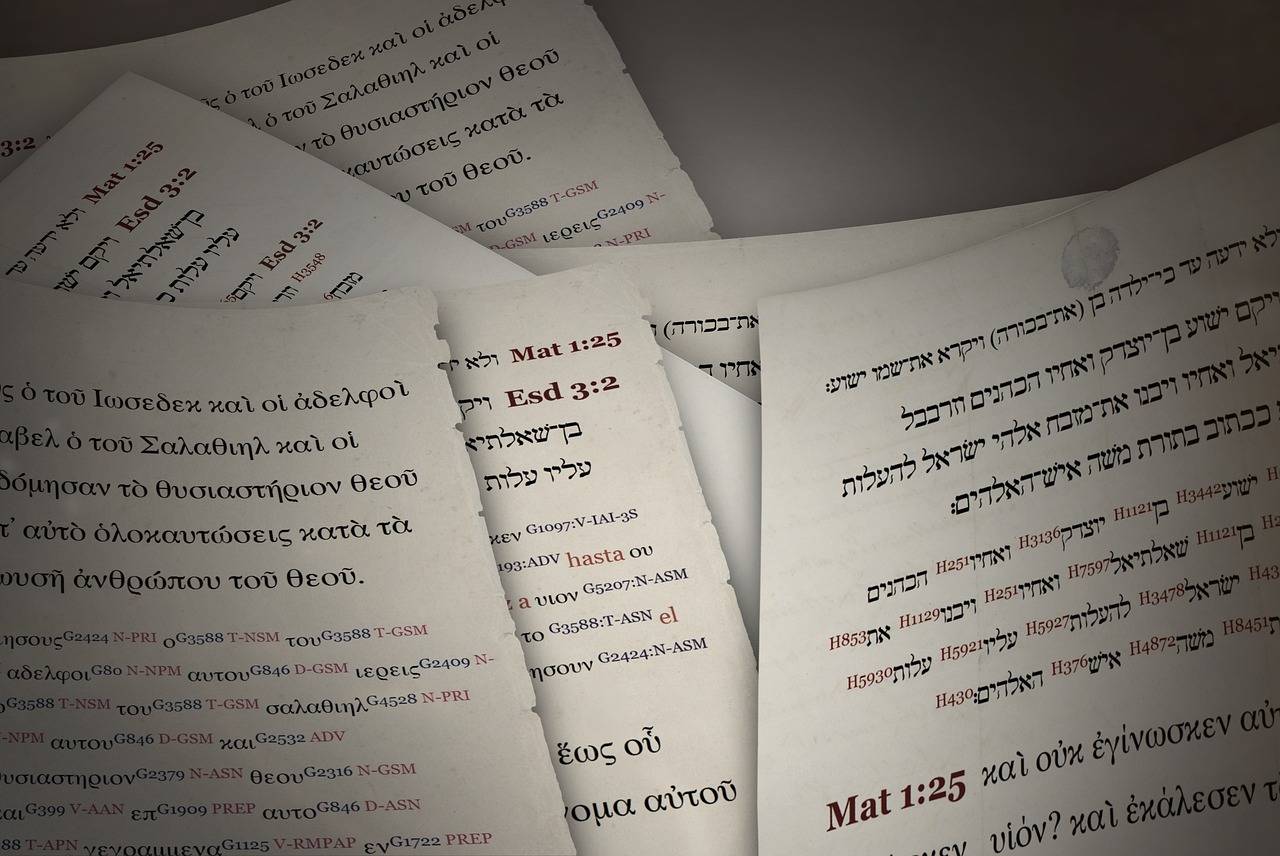 ὁ τοῦ Ιωσεδεκ καὶ οἱ
ὁ τοῦ Σαλαθιηλ καὶ οἱ
τὸ θυσιαστήριον θεοῦ
κατὰ τὰ
τοῦ θεοῦ.
τουG3588 T-GSM
D-GSM ιερειςG2409 N-
N-PRI
3:2
Mat 1:25 ולא ידעה עד
Esd 3:2 ויקם
בן־שאלתיאל
עליו עלות
Esd 3:2
H3548
ὁ τοῦ Ιωσεδεκ καὶ οἱ ἀδελφοὶ
ὁ τοῦ Σαλαθιηλ καὶ οἱ
τὸ θυσιαστήριον θεοῦ
αὐτὸ ὁλοκαυτώσεις κατὰ τὰ
ἀνθρώπου τοῦ θεοῦ.
G2424 N-PRI οG3588 T-NSM τουG3588 T-GSM
αδελφοιG80 N-NPM αυτουG846 D-GSM ιερειςG2409 N-
G3588 T-NSM τουG3588 T-GSM σαλαθιηλG4528 N-PRI
N-NPM αυτουG846 D-GSM καιG2532 ADV
G2379 N-ASN θεουG2316 N-GSM
G399 V-AAN επG1909 PREP αυτοG846 D-ASN
T-APN γεγραμμεναG1125 V-RMPAP ενG1722 PREP
Mat 1:25 ולא
Esd 3:2
עליו עלות
G1097:V-IAI-3S
ADV hasta ου
a υιον G5207:N-ASM
το G3588:T-ASN el
G2424:N-ASM
ἕως οὗ
αὐτοῦ
את־בכורה)
ידעה עד כי־ילדה בן (את־בכורה) ויקרא את־שמו ישוע:
ויקם ישוע בן־יוצדק ואחיו הכהנים וזרבבל
ואחיו ויבנו את־מזבח אלהי ישראל להעלות
ככתוב בתורת משה איש־האלהים:
ישועH3442 בןH1121 יוצדקH3136 ואחיוH251 הכהנים
בןH1121 שאלתיאלH7597 ואחיוH251 ויבנוH1129 אתH853
ישראלH3478 להעלותH5927 עליוH5921 עלותH5930
H8451 משהH4872 אישH376 האלהים:H430
Mat 1:25 καὶ οὐκ ἐγίνωσκεν
υἱόν? καὶ ἐκάλεσεν